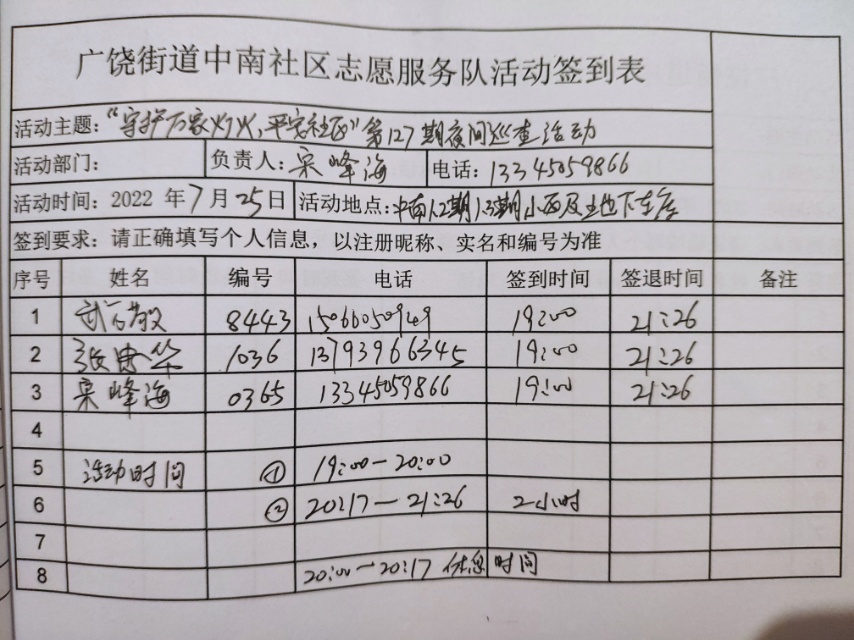 广饶街道中南社区志愿服务队活动签到表
活动主题：“守护万家灯火，平安社区”第127期夜间巡查活动
活动部门： 负责人：宋峰海 电话：13345059866
活动时间：2022 年7月25日 活动地点：中南1.2期1.3期小区及地下车库
签到要求：请正确填写个人信息，以注册昵称、实名和编号为准
序号 姓名 编号 电话 签到时间 签退时间 备注
1 8443 15066050949 19:00 21:26
2 张华 1036 13793966345 19:00 21:26
3 宋峰海 0365 13345059866 19:00 21:26
4
5 活动时间 ① 19:00—20:00
6 ② 20:17—21:26 2小时
7
8 20:00—20:17 休息时间